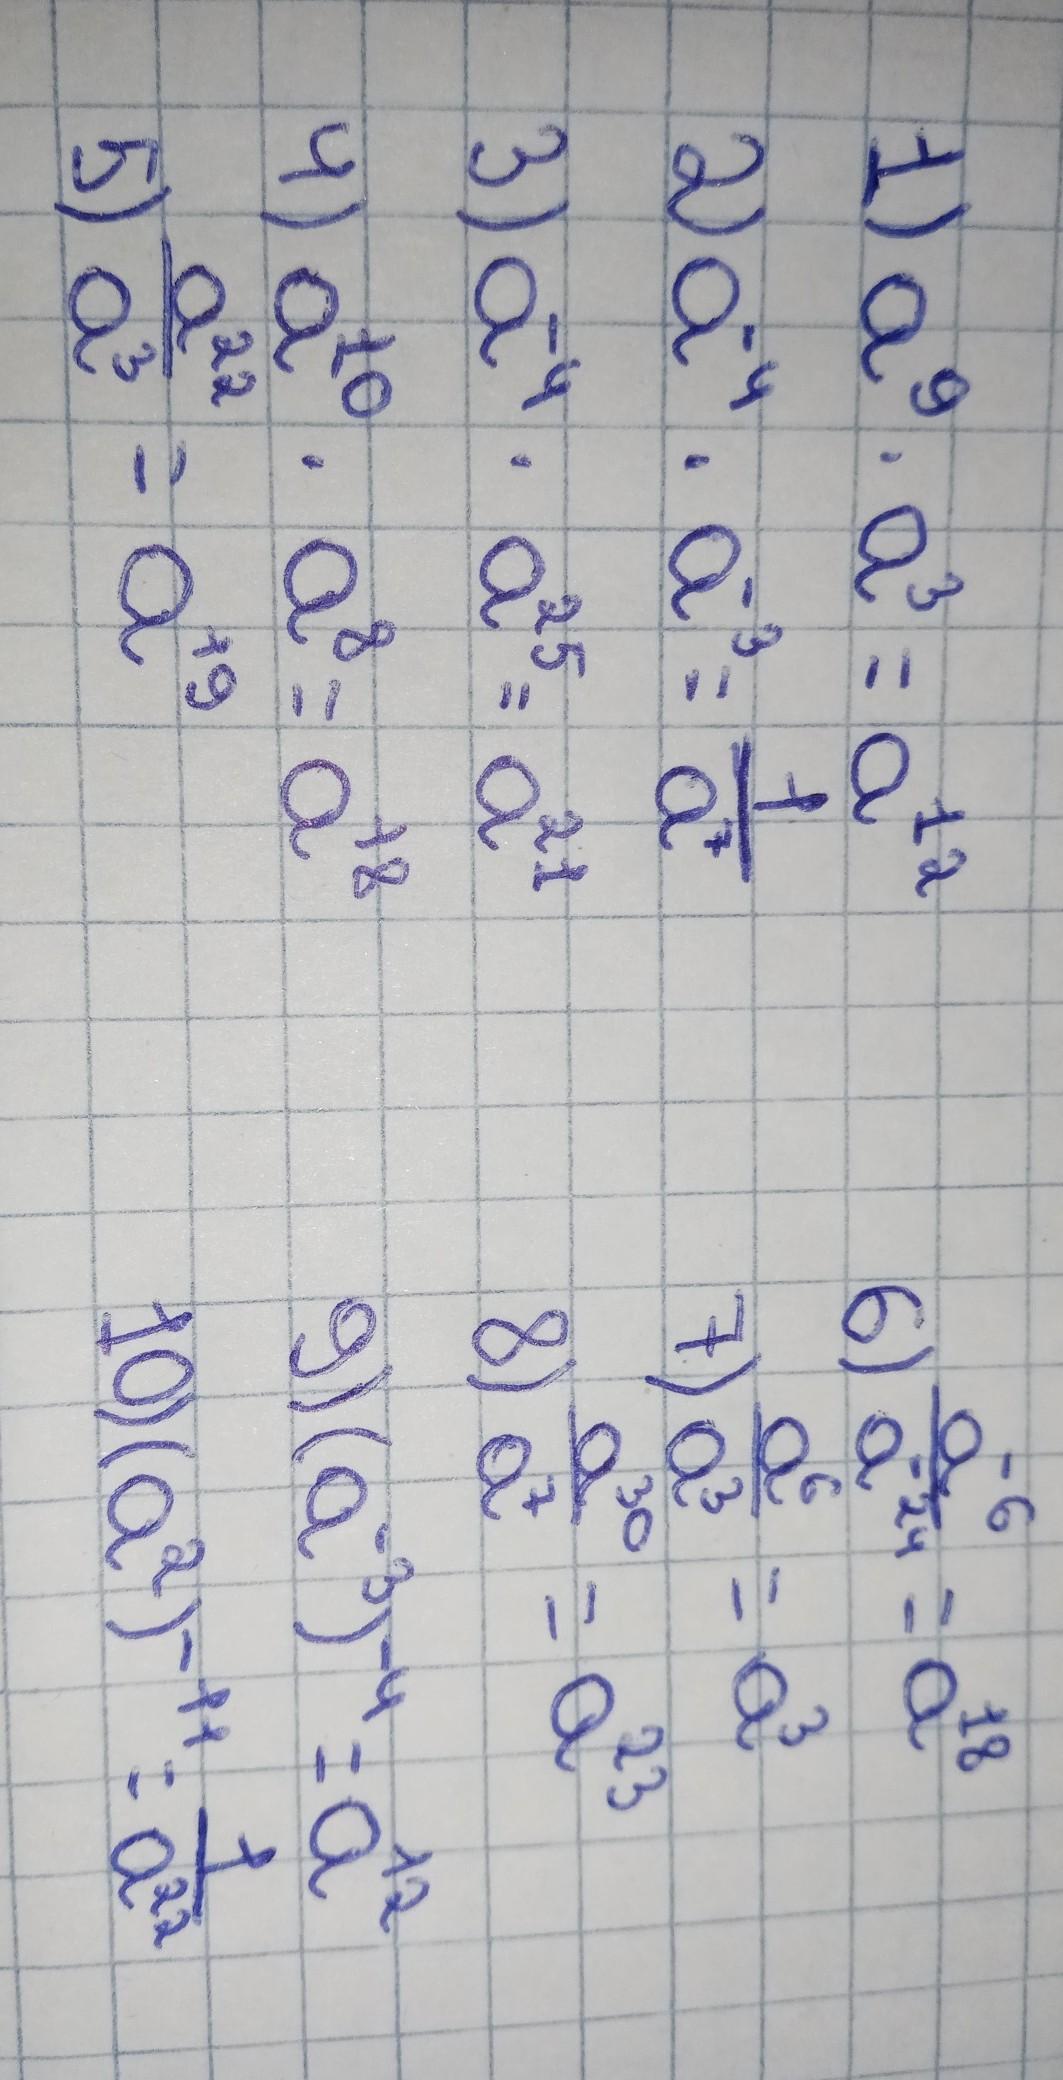 1) a⁹ · a³ = a¹²
2) a⁻⁴ · a⁻³ = 1/a⁷
3) a⁻⁴ · a²⁵ = a²¹
4) a¹⁰ · a⁸ = a¹⁸
5) a²²/a³ = a¹⁹
6) a⁻⁶/a⁻²⁴ = a¹⁸
7) a⁶/a³ = a³
8) a³⁰/a⁷ = a²³
9) (a⁻³)⁻⁴ = a¹²
10) (a²)⁻¹¹ = 1/a²²